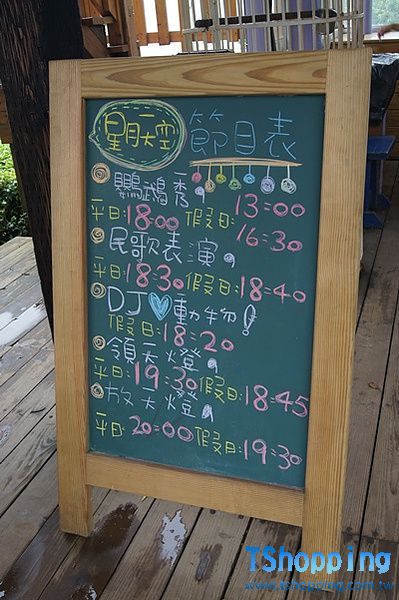 星月天空 節目表
鸚鵡秀。
平日:18:00 假日: 13:00
16:30
民歌表演。
平日:18:30 假日:18:40
DJ♡動物!
假日:18:20
領天燈。
平日:19:30 假日:18:45
放天燈。
平日:20:00 假日:19:30
TShopping
www.tshopping.com.tw